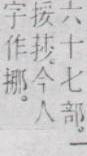 六十七部。一
挼莏。今人
字作挪。